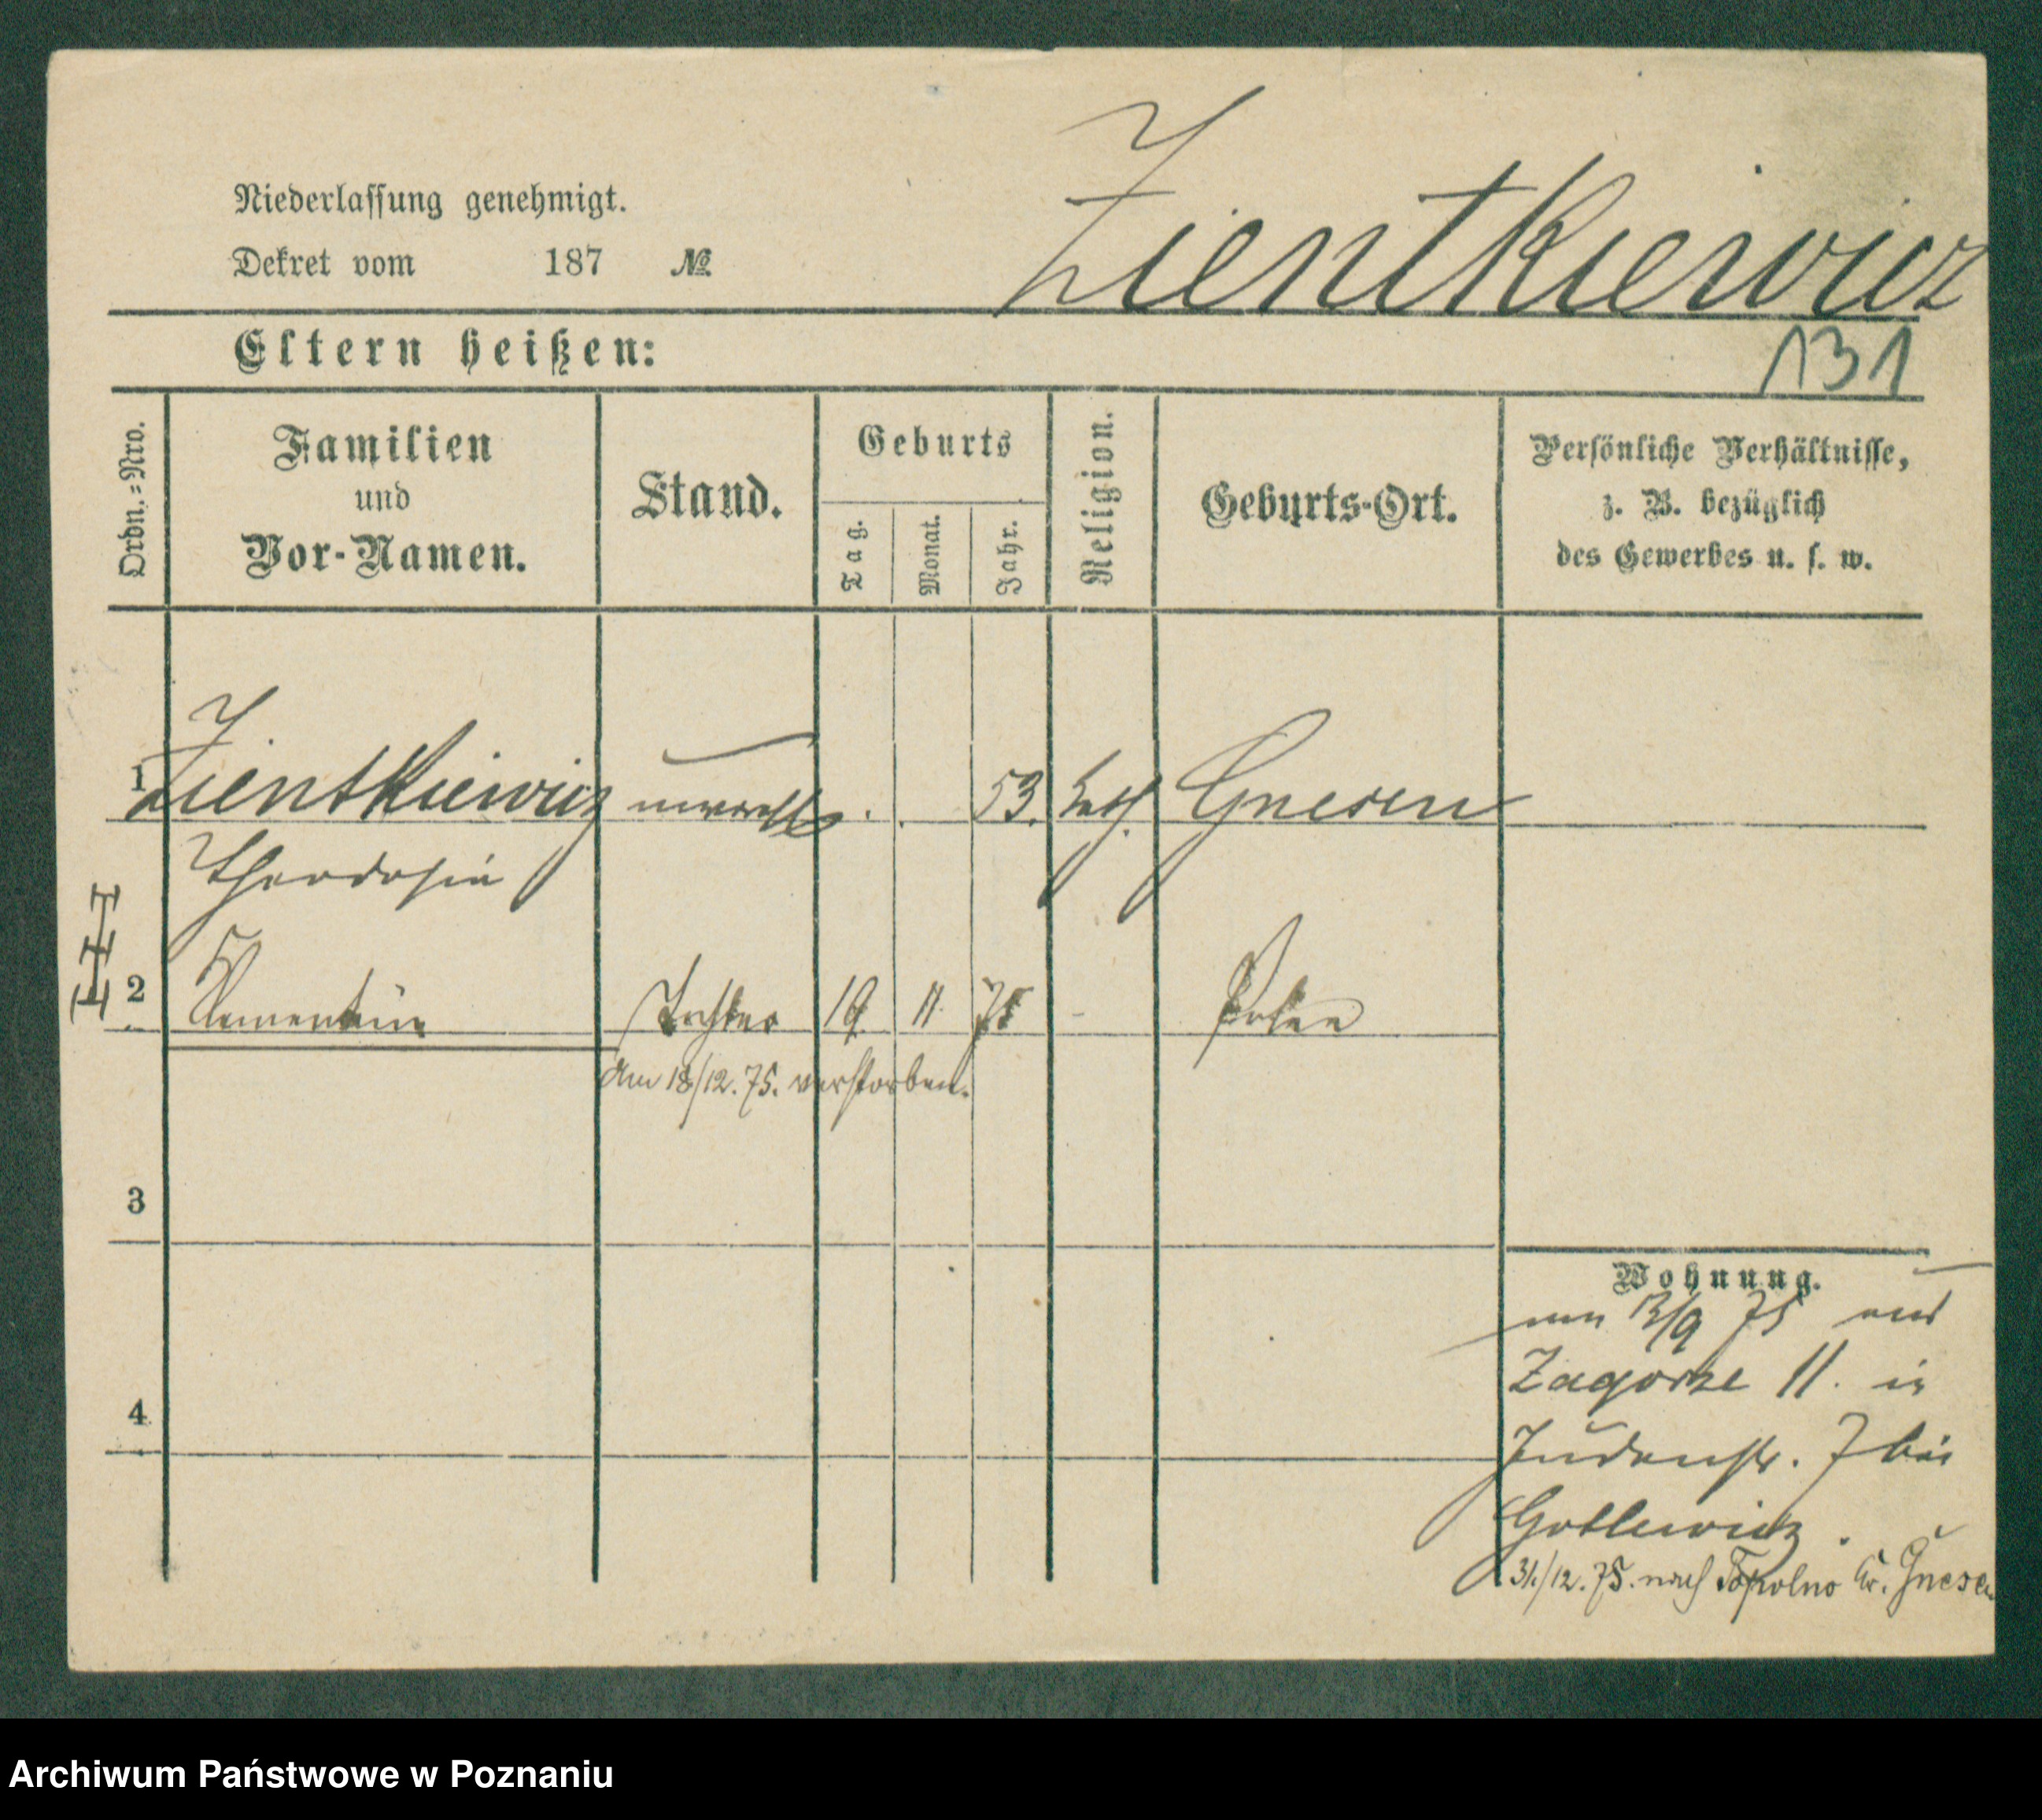 Zientkiewicz
Niederlassung genehmigt.
Dekret vom 187 №
Eltern heißen:
131
Ordn.=Nro.
Familien
und
Vor-Namen.
Stand.
Geburts
Tag.
Monat.
Jahr.
Religion.
Geburts-Ort.
Persönliche Verhältnisse,
z. B. bezüglich
des Gewerbes u. s. w.
1 Zientkiewicz unverehl. 53. kath. Gnesen
Theodosia
2 Clementine Tochter 19 11 75 Posen
Am 18/12. 75. verstorben.
3
4
Wohnung.
75
Zagorze 11. in
Judenstr. 7 bei
31./12. 75. nach Topolno Kr. Gnesen
Archiwum Państwowe w Poznaniu